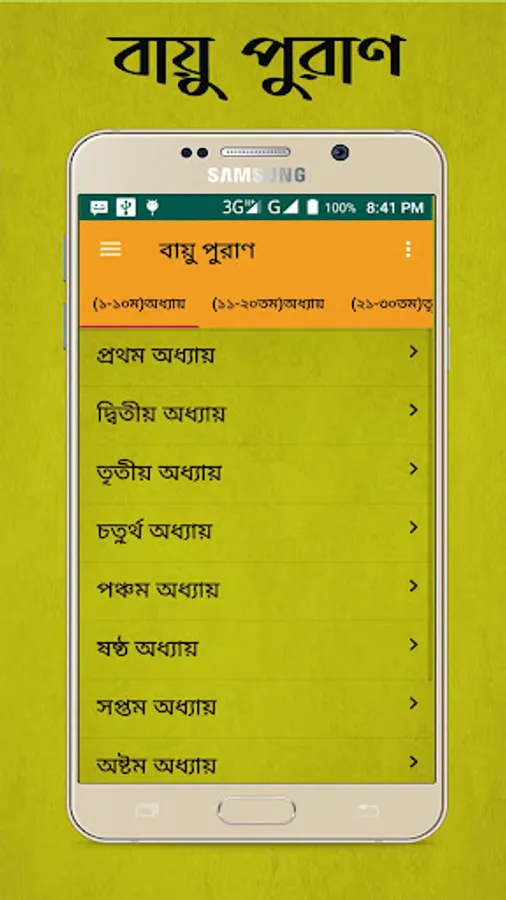 বায়ু পুরাণ
SAMSUNG
3G H+ G 100% 8:41 PM
বায়ু পুরাণ
(১-১০ম)অধ্যায় (১১-২০তম)অধ্যায় (২১-৩০তম)তৃ
প্রথম অধ্যায়
দ্বিতীয় অধ্যায়
তৃতীয় অধ্যায়
চতুর্থ অধ্যায়
পঞ্চম অধ্যায়
ষষ্ঠ অধ্যায়
সপ্তম অধ্যায়
অষ্টম অধ্যায়